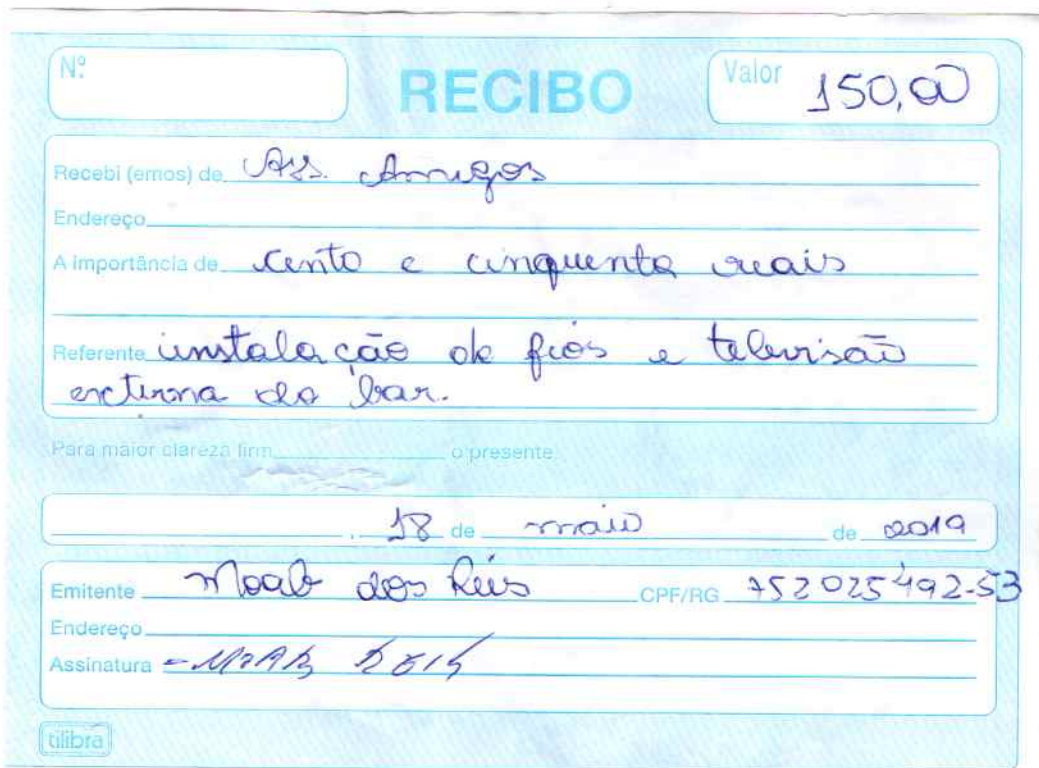 Nº
RECIBO
Valor 150,00
Recebi (emos) de Ass. Amigos
Endereço
A importância de cento e cinquenta reais
Referente instalação de fios e televisão
externa do bar.
Para maior clareza firm o presente
, 18 de maio de 2019
Emitente Moab dos Reis CPF/RG 752025492-53
Endereço
Assinatura - MOAB REIS
tilibra